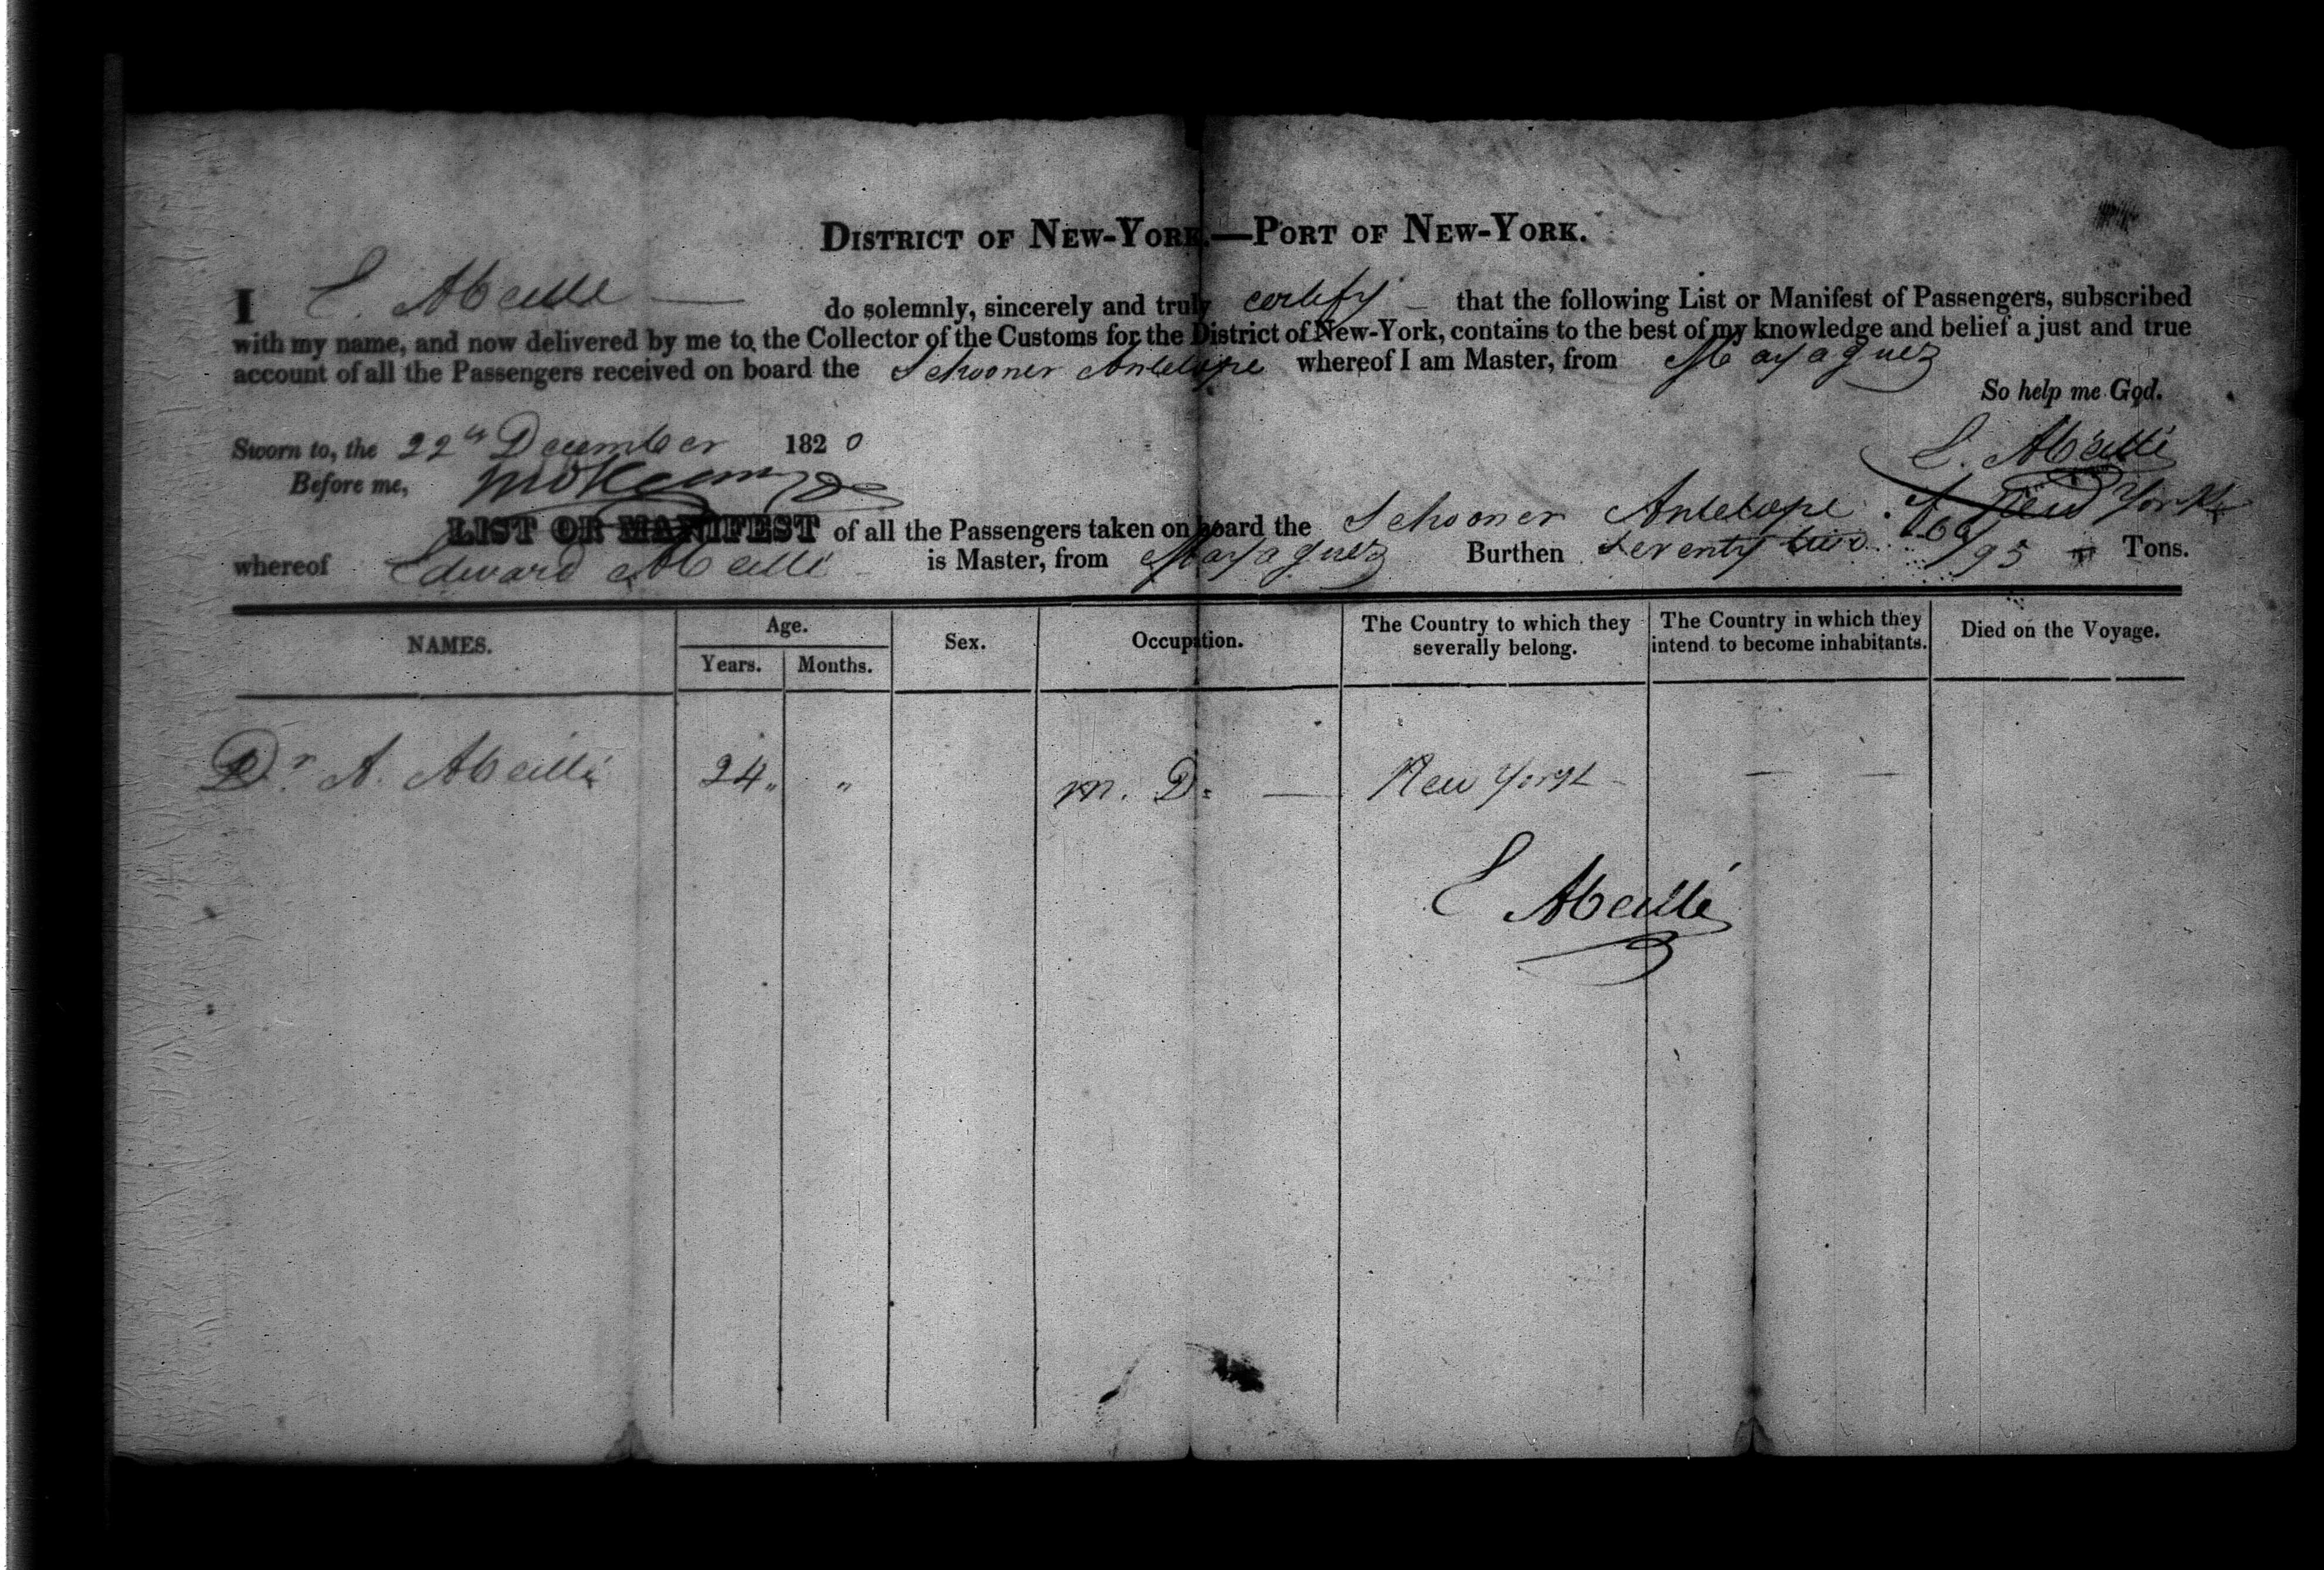 DISTRICT OF NEW-YORK.—PORT OF NEW-YORK.
I E. Abeille — do solemnly, sincerely and truly certify — that the following List or Manifest of Passengers, subscribed
with my name, and now delivered by me to the Collector of the Customs for the District of New-York, contains to the best of my knowledge and belief a just and true
account of all the Passengers received on board the Schooner Antelope whereof I am Master, from Mayaguez
So help me God.
Sworn to, the 22th December 1820
E. Abeillé
Before me,
LIST OR MANIFEST of all the Passengers taken on board the Schooner Antelope of New York
whereof Edward Abeillé is Master, from Mayaguez Burthen Seventy two 60/95 Tons.
NAMES. Age. Sex. Occupation. The Country to which they severally belong. The Country in which they intend to become inhabitants. Died on the Voyage.
Years. Months.
Dr. A. Abeillé 24 " " M. D. — New York — —
E Abeillé